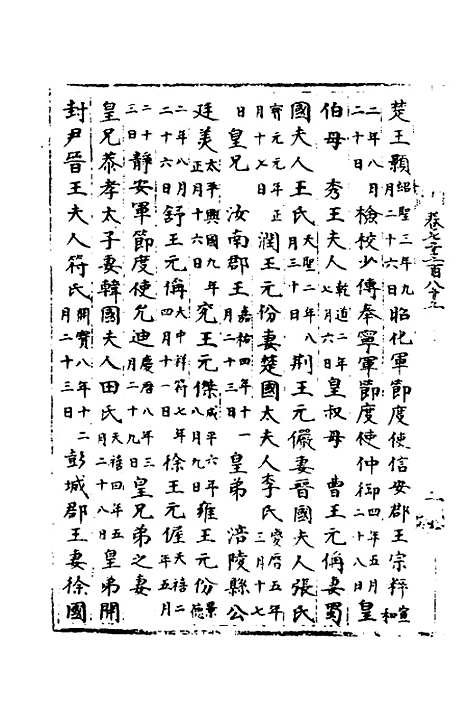 楚王顥紹聖三年九月二十六日昭化軍節度使信安郡王宗粹宣和
二年八月二十日檢校少傅奉寧軍節度使仲御四年五月二十八日皇
伯母 秀王夫人乾道二年七月六日皇叔母 曹王元偁妻蜀
國夫人王氏天聖二年八月三十日荆王元儼妻晉國夫人張氏
寶元元年正月十七日潤王元份妻楚國太夫人李氏慶曆五年三月十七
日皇兄 汝南郡王嘉祐四年十一月二十三日皇弟 涪陵縣公
廷美太平興國九年正月十六日兗王元傑咸平六年八月九日雍王元份景德
二年八月二十六日舒王元偁大中祥符七年四月十一日徐王元偓天禧二年五月
二十三日靜安軍節度使允迪慶曆八年三月二十九日皇兄弟之妻
皇兄恭孝太子妻韓國夫人田氏天禧四年五月二十八日皇弟開
封尹晉王夫人符氏開寶八年十二月二十三日彭城郡王妻徐國